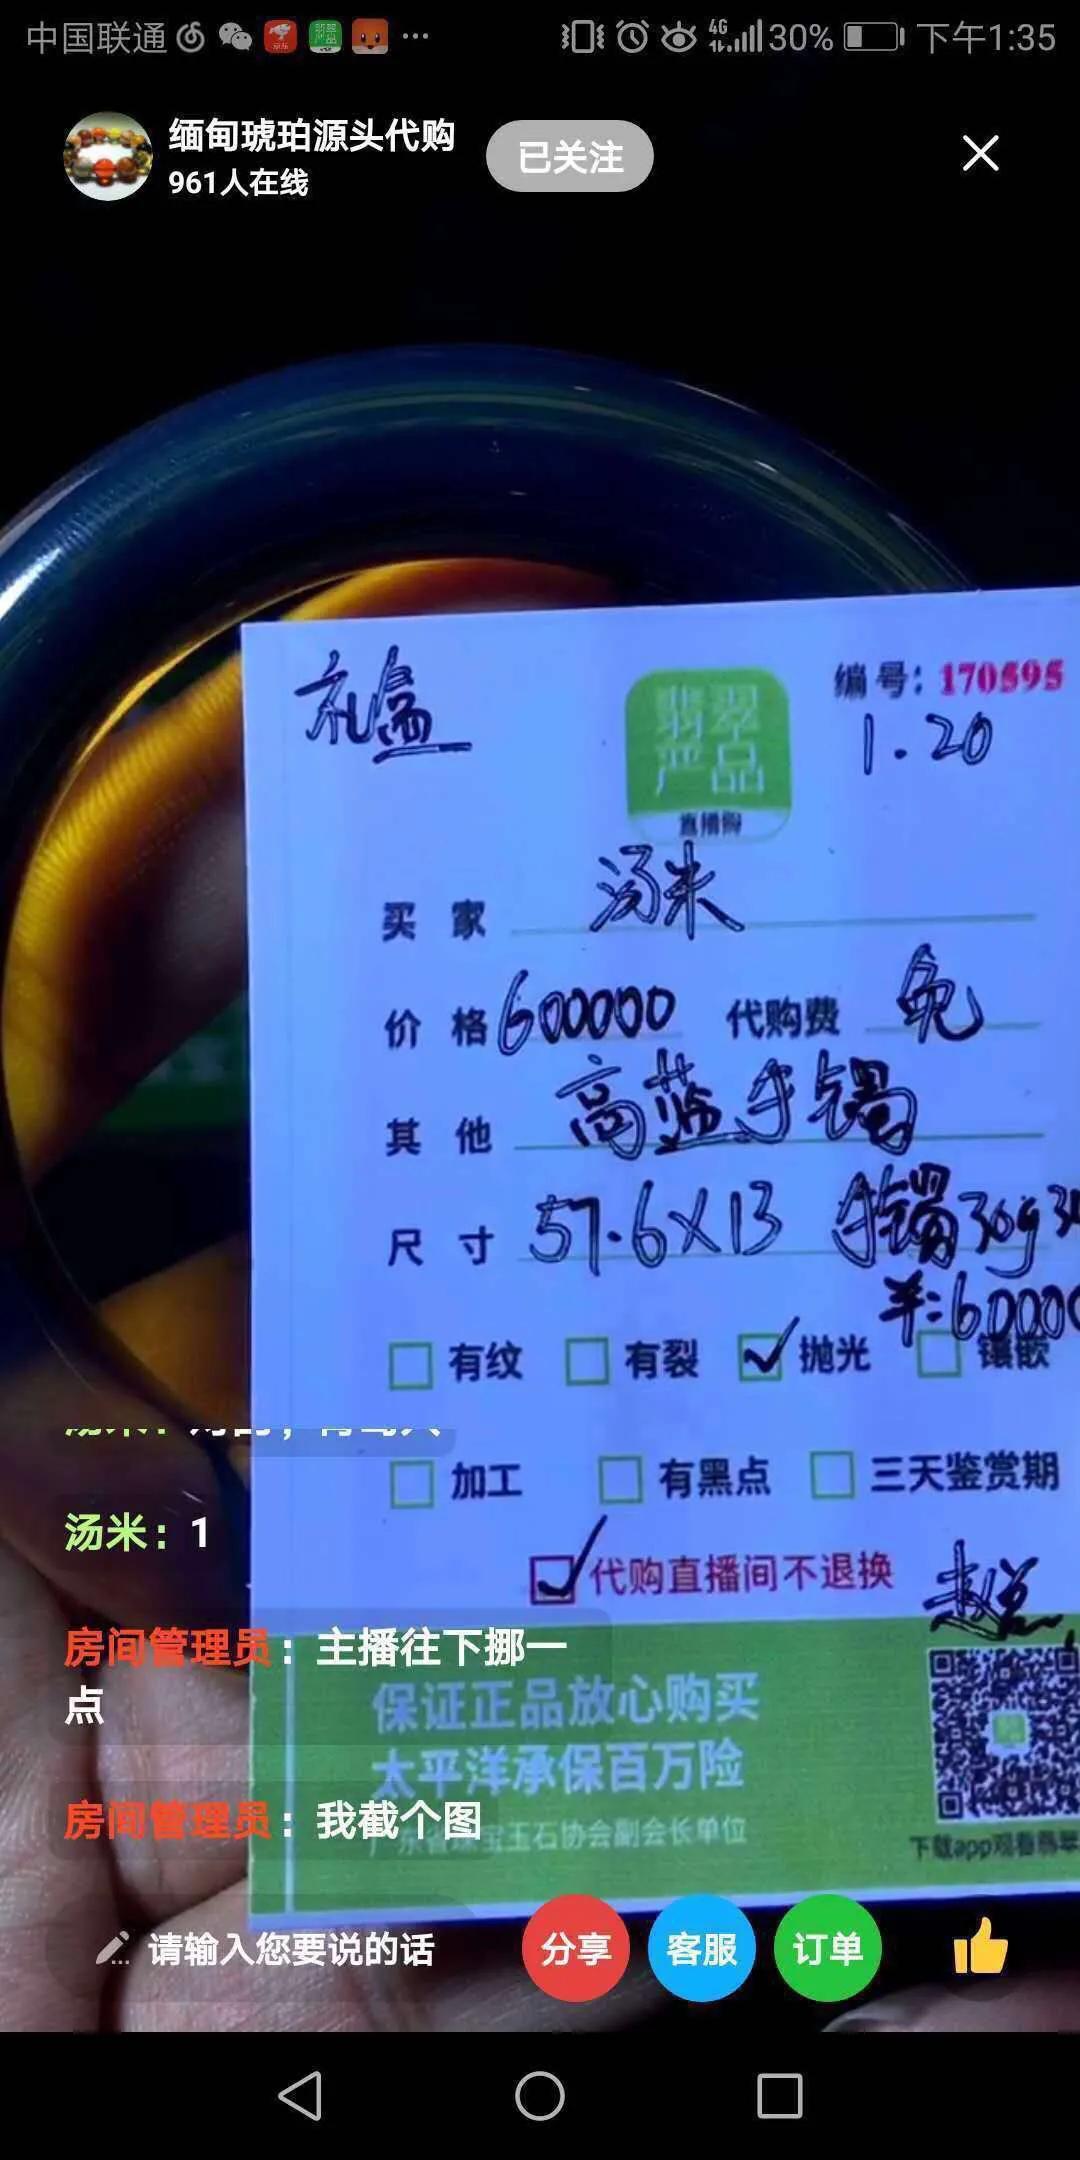 中国联通
4G
30%
下午1:35
缅甸琥珀源头代购
961人在线
已关注
礼盒
编号：170595
1.20
翡翠
严品
直播购
买家 汤米
价格 600000 代购费 免
其他 高蓝手镯
尺寸 57.6X13 手镯30g
羊:60000
有纹 有裂 抛光 镶嵌
加工 有黑点 三天鉴赏期
代购直播间不退换
汤米：1
房间管理员：主播往下挪一
点
保证正品放心购买
太平洋承保百万险
房间管理员：我截个图
广东省珠宝玉石协会副会长单位
下载app观看翡翠
请输入您要说的话
分享
客服
订单